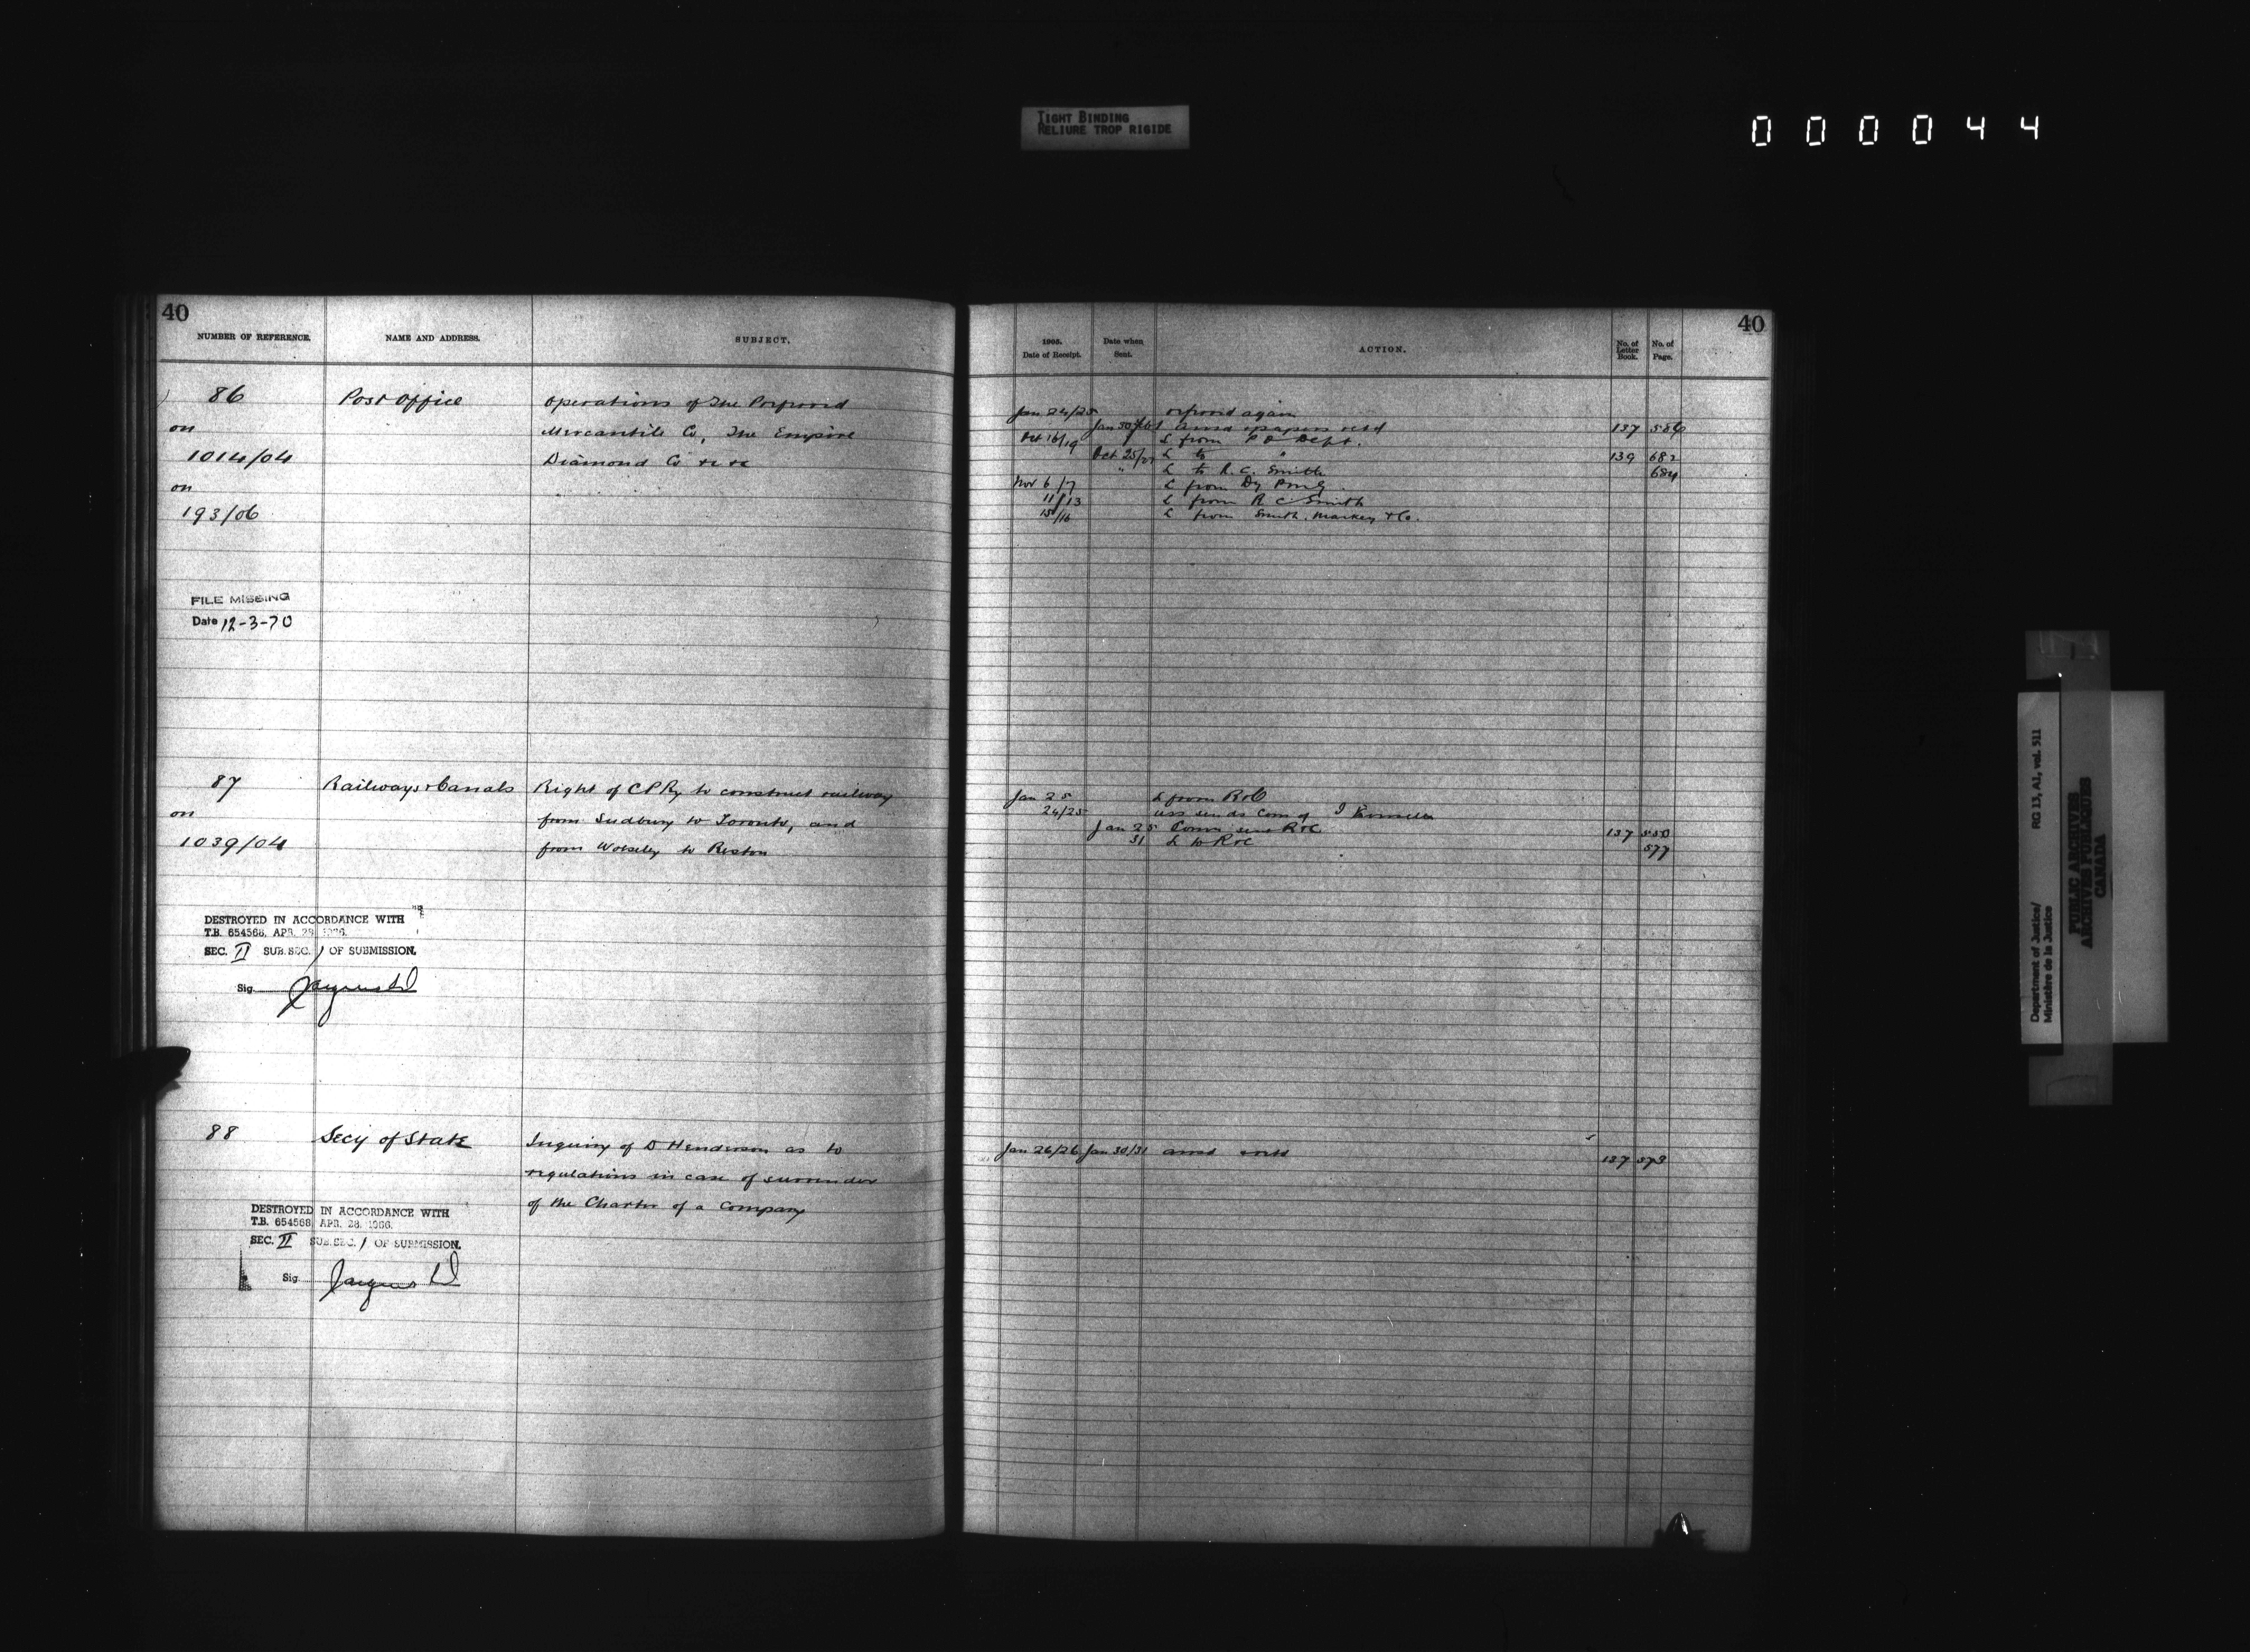 TIGHT BINDING
RELIURE TROP RIGIDE
000044
40
NUMBER OF REFERENCE.
NAME AND ADDRESS.
SUBJECT.
86
Post Office
Operations of The
on
Mercantile Co, The Empire
1014/04
Diamond Co &c &c
on
193/06
FILE MISSING
Date 12-3-70
87
Railways & Canals
Right of C P Ry to construct railway
on
from Sudbury to Toronto, and
1039/04
from Wolseley to Reston
DESTROYED IN ACCORDANCE WITH
T.B. 654568, APR. 28, 1966.
SEC. II SUB.SEC. 1 OF SUBMISSION.
Sig.
88
Secy of State
Inquiry of D Henderson as to
regulations in case of surrender
of the Charter of a Company
DESTROYED IN ACCORDANCE WITH
T.B. 654568, APR. 28, 1966.
SEC. II SUB.SEC. 1 OF SUBMISSION.
Sig.
40
1905.
Date of Receipt.
Date when
Sent.
ACTION.
No. of
Letter
Book.
No. of
Page.
Jan 24/25
again
Jan 30
papers retd
137 586
Oct 16/19
L from P O Dept.
Oct 25/27
L to "
139 682
"
L to R. C. Smith
684
Nov 6/7
L from Dy PMG
11/13
L from R C Smith
15/16
L from Smith, Markey & Co.
Jan 25
L from R & C
24/25
Jan 25
R & C
137 550
31
L to R & C
577
Jan 26/26
Jan 30/31
137 573
Department of Justice/
Ministère de la Justice
RG 13, A1, vol. 511
PUBLIC ARCHIVES
ARCHIVES PUBLIQUES
CANADA